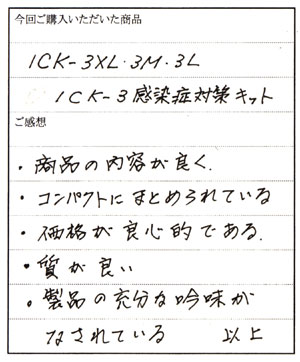 今回ご購入いただいた商品
ICK-3XL・3M・3L
ICK-3 感染症対策キット
ご感想
・商品の内容が良く.
・コンパクトにまとめられている
・価格が良心的である.
・質が良い
。製品の充分な吟味が
なされている 以上